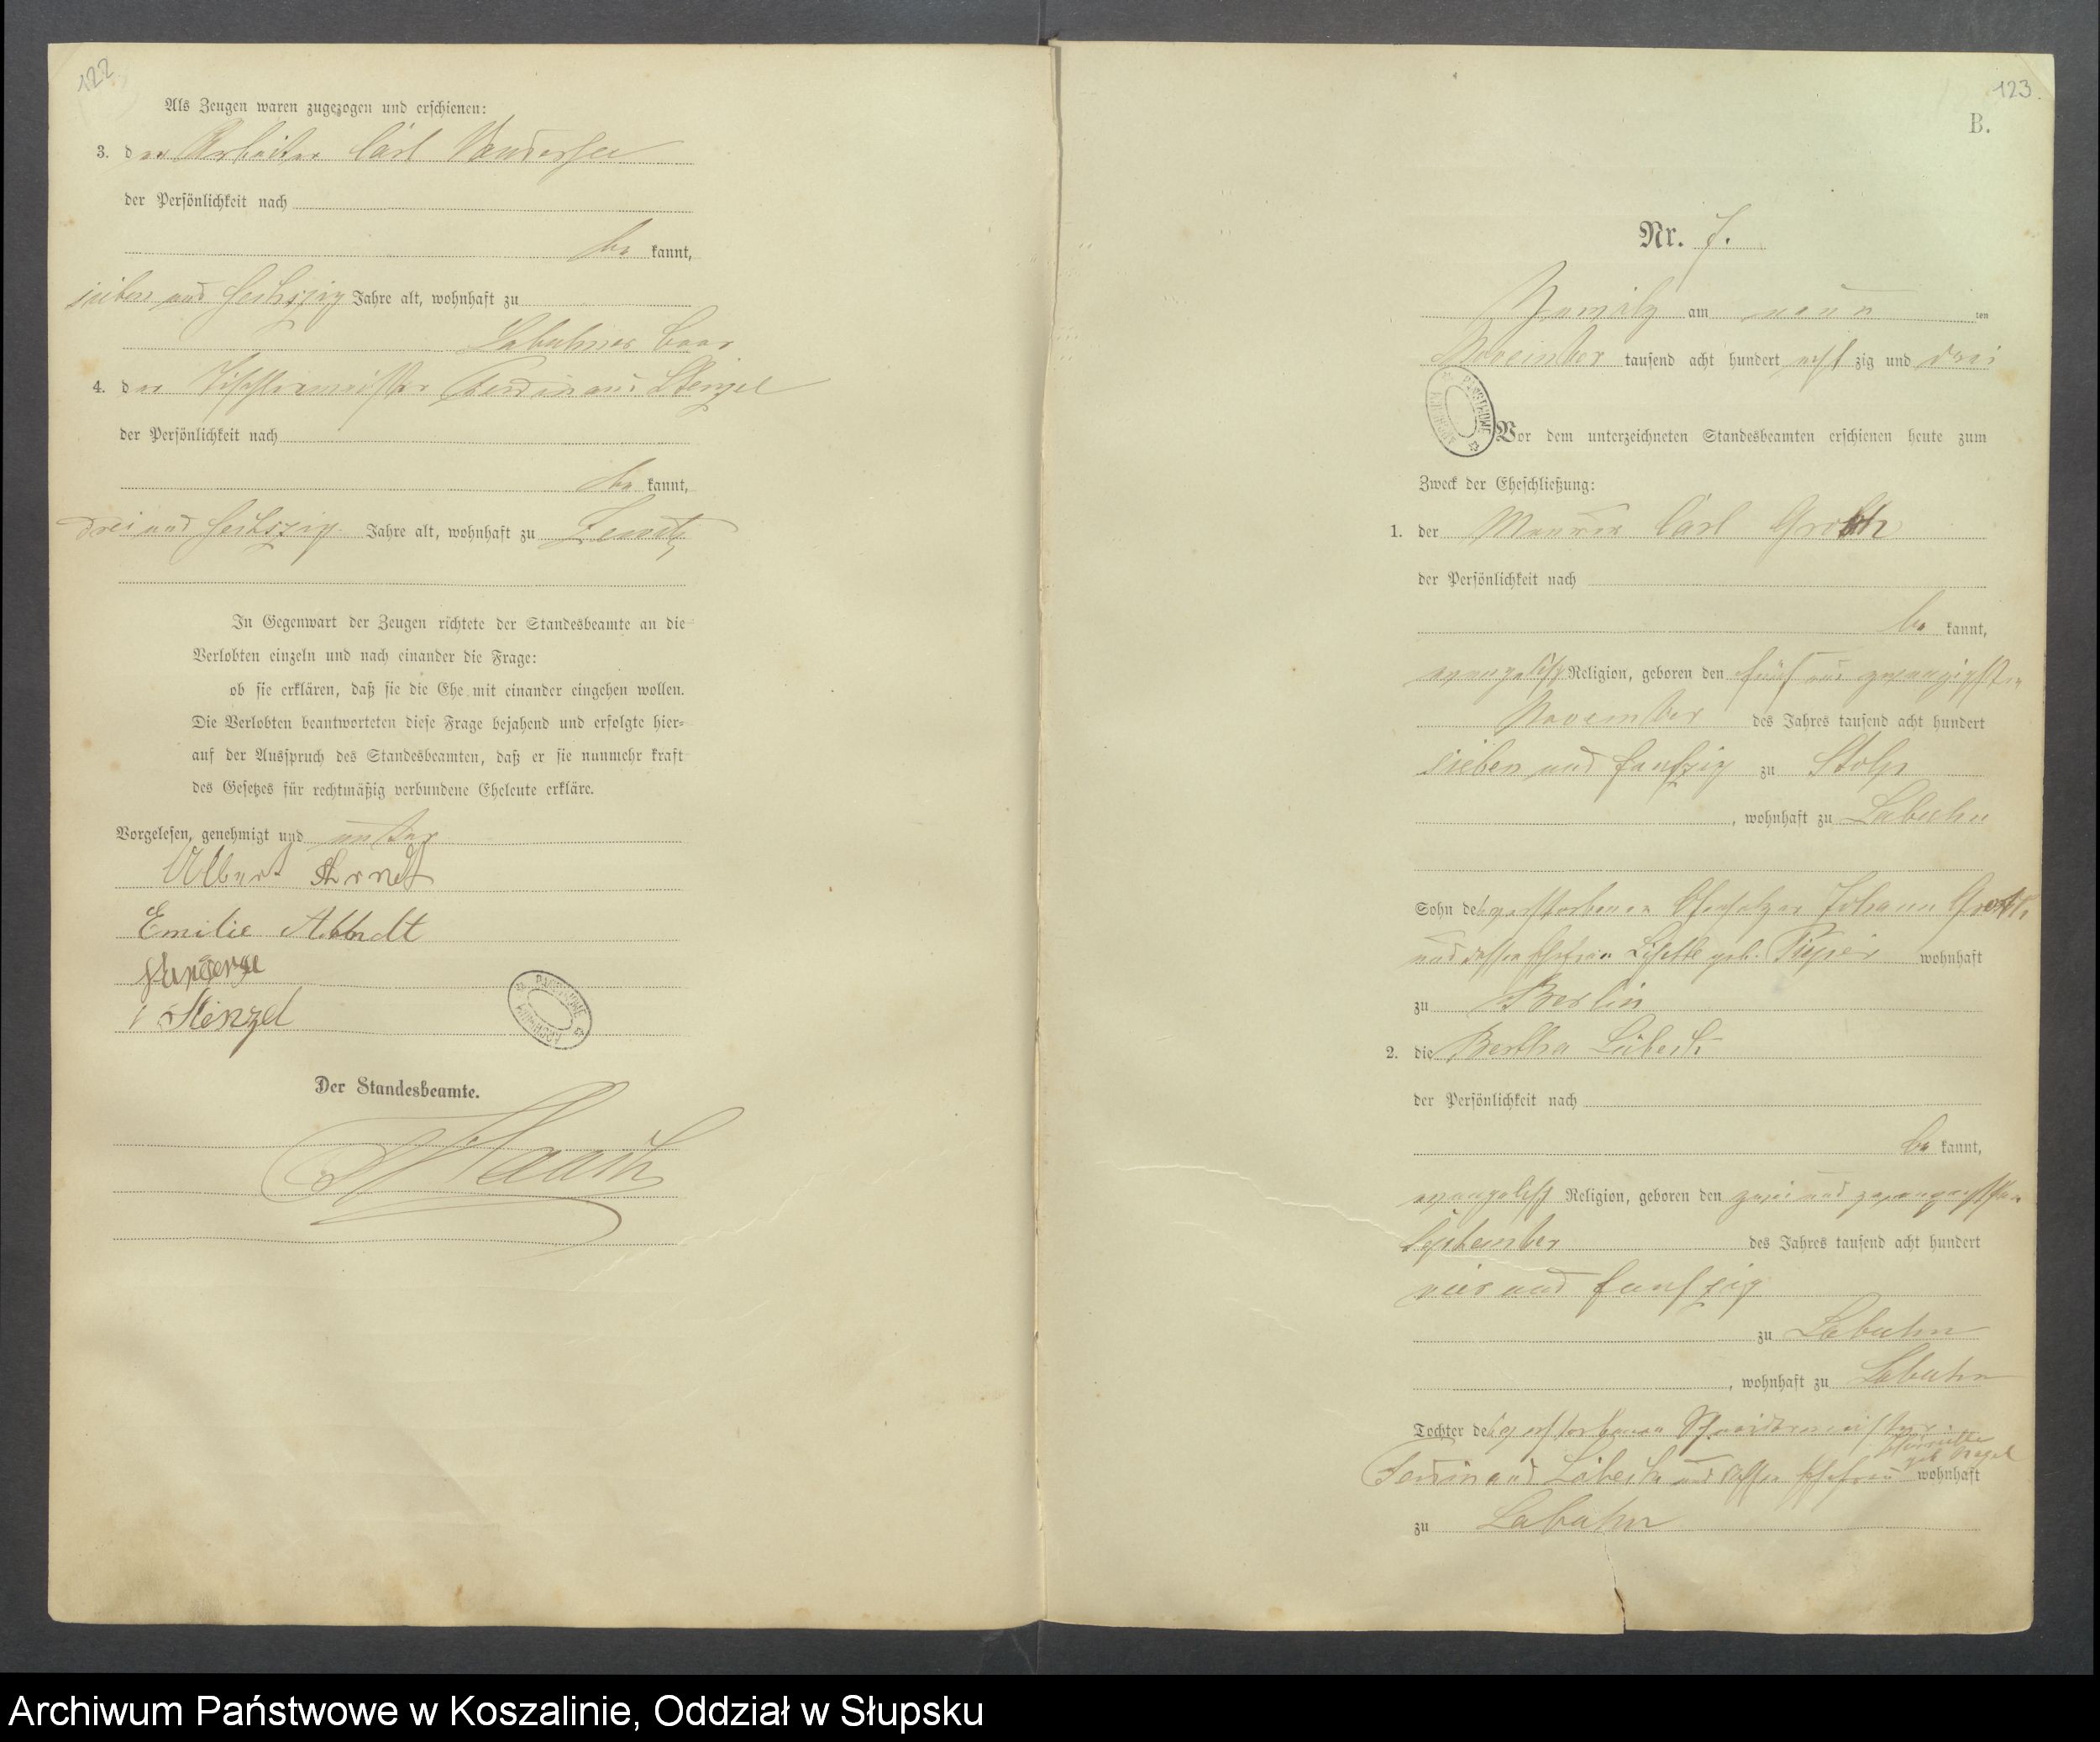 122
Als Zeugen waren zugezogen und erschienen:
3. der Arbeiter Carl Vandersee
der Persönlichkeit nach
be kannt,
sieben und sechszig Jahre alt, wohnhaft zu
Labuhner
4. der Tischlermeister Ferdinand Stenzel
der Persönlichkeit nach
be kannt,
drei und sechszig Jahre alt, wohnhaft zu
In Gegenwart der Zeugen richtete der Standesbeamte an die
Verlobten einzeln und nach einander die Frage:
ob sie erklären, daß sie die Ehe mit einander eingehen wollen.
Die Verlobten beantworteten diese Frage bejahend und erfolgte hier-
auf der Ausspruch des Standesbeamten, daß er sie nunmehr kraft
des Gesetzes für rechtmäßig verbundene Eheleute erkläre.
Vorgelesen, genehmigt und unter
Albert Arndt
Emilie
Stenzel
Der Standesbeamte.
123.
B.
Nr. 7.
am neun ten
November tausend acht hundert acht zig und drei
Vor dem unterzeichneten Standesbeamten erschienen heute zum
Zweck der Eheschließung:
1. der Maurer Carl Groth
der Persönlichkeit nach
be kannt,
evangelisch Religion, geboren den fünf und zwanzigsten
November des Jahres tausend acht hundert
sieben und funfzig zu Stolp
, wohnhaft zu Labuhn
Sohn des verstorbenen Johann Groth
und dessen Ehefrau geb. wohnhaft
zu Berlin
2. die Bertha Lübeck
der Persönlichkeit nach
be kannt,
evangelisch Religion, geboren den zwei und zwanzigsten
September des Jahres tausend acht hundert
vier und funfzig
zu Labuhn
, wohnhaft zu Labuhn
Tochter des verstorbenen Schneidermeister
Henriette
geb Nagel
Ferdinand Lübeck und dessen Ehefrau wohnhaft
zu Labuhn
ARCHIWUM PAŃSTWOWE
ARCHIWUM PAŃSTWOWE
Archiwum Państwowe w Koszalinie, Oddział w Słupsku